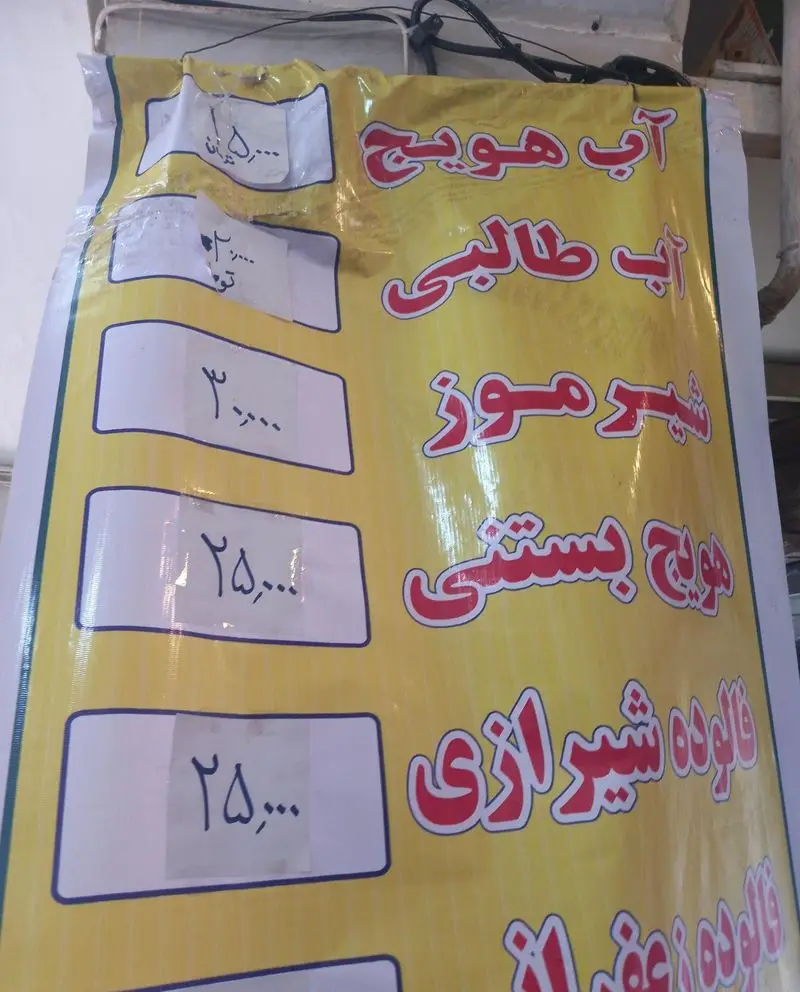 آب هویج ۱۵,۰۰۰
آب طالبی ۲۰,۰۰۰
شیر موز ۳۰,۰۰۰
هویج بستنی ۲۵,۰۰۰
فالوده شیرازی ۲۵,۰۰۰
فالوده